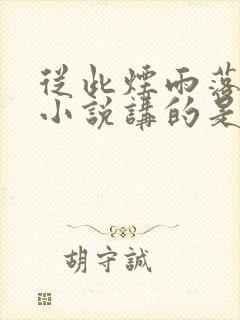 從此煙雨落
小說講的是
胡守誠